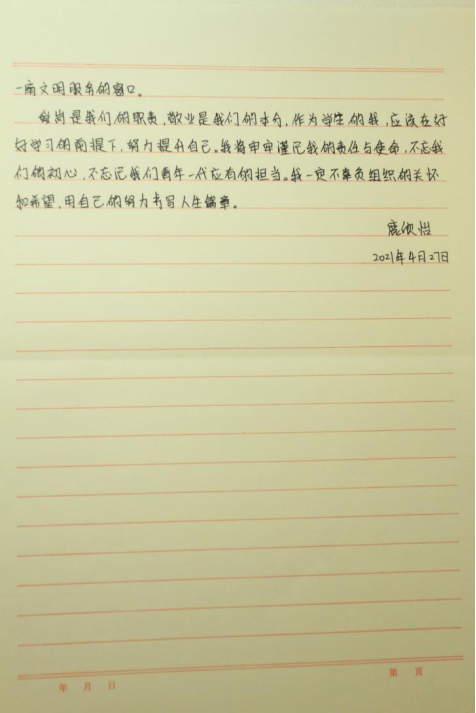 一扇文明服务的窗口。
爱岗是我们的职责,敬业是我们的本分,作为学生的我,应该在好
好学习的前提下,努力提升自己。我将牢牢谨记我的责任与使命,不忘我
们的初心,不忘记我们青年一代应有的担当。我一定不辜负组织的关怀
和希望,用自己的努力书写人生篇章。
庞欣怡
2021年4月27日
年 月 日
第 页